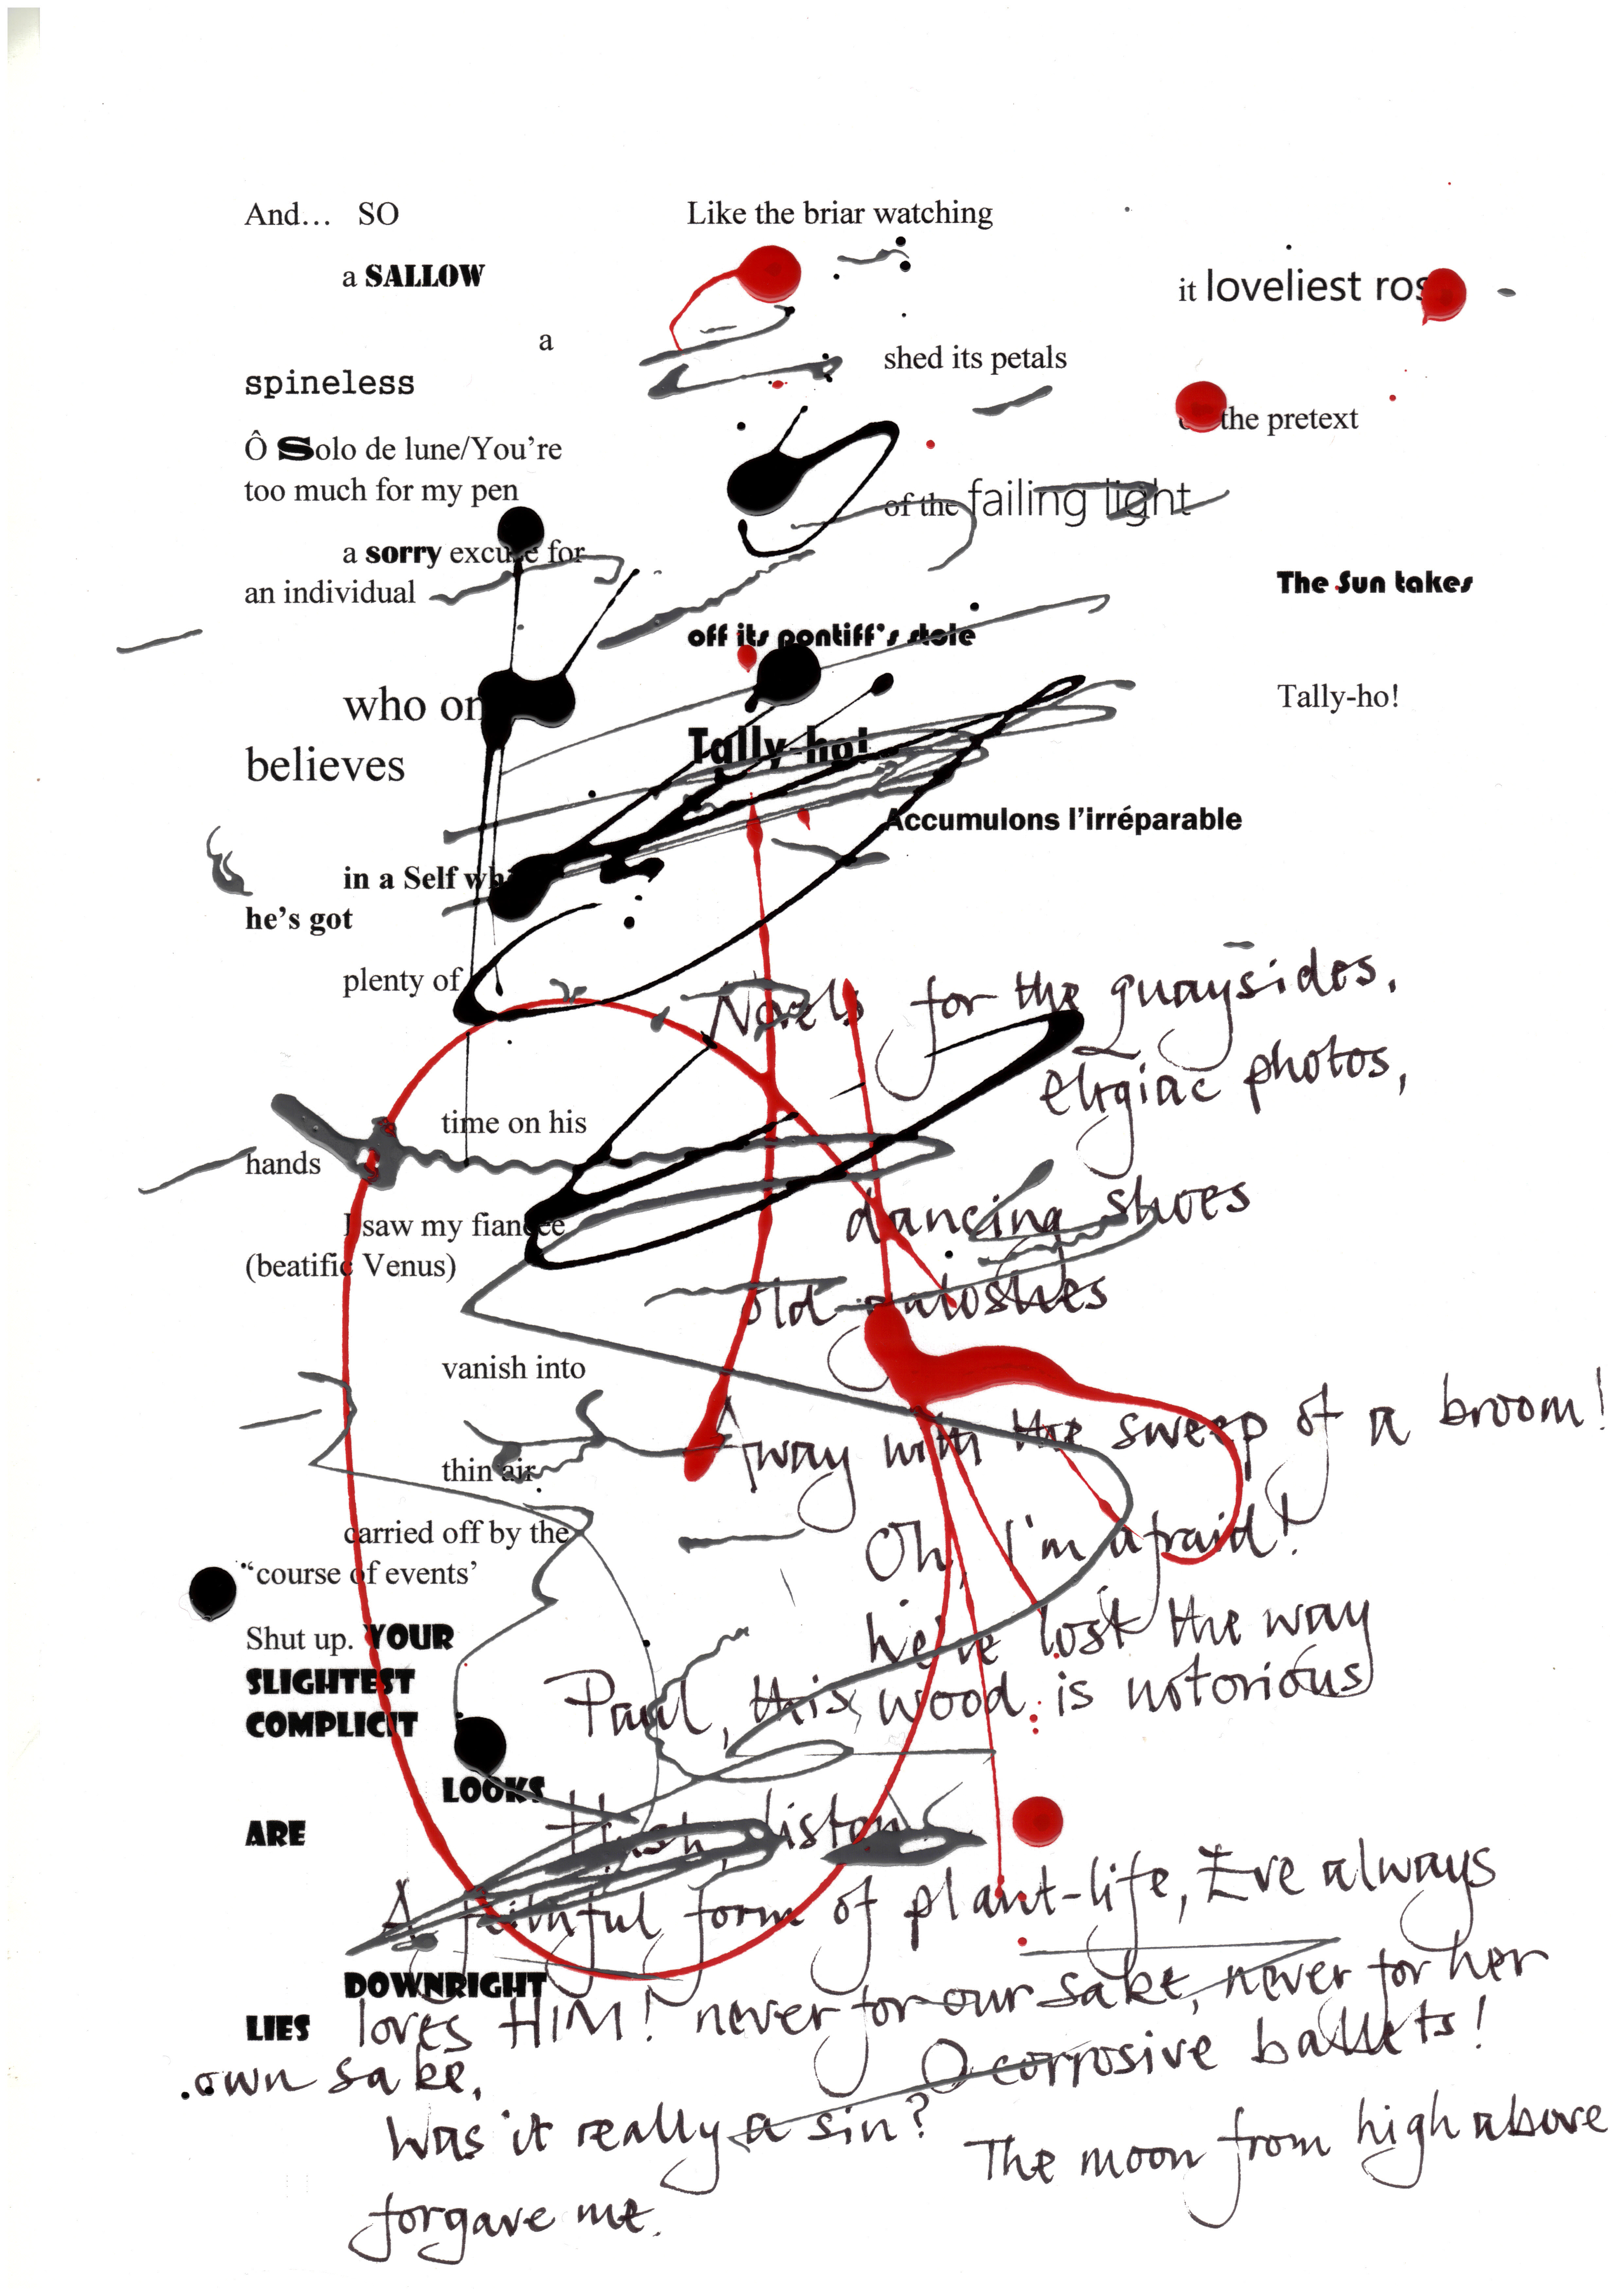 And… SO
Like the briar watching
a SALLOW
it loveliest
a
shed its petals
spineless
the pretext
Ô Solo de lune/You're
too much for my pen
of the failing light
a sorry excuse for
an individual
The Sun takes
off its pontiff's stole
who
believes
Tally-ho!
Tally-ho!
Accumulons l'irréparable
in a Self
he's got
plenty of
Novels for the quaysides,
elegiac photos,
time on his
hands
dancing shoes
I saw my fiancée
(beatific Venus)
old galoshes
vanish into
Away with the sweep of a broom!
thin air
Oh, I'm afraid!
carried off by the
“course of events’
We've lost the way
Shut up. YOUR
SLIGHTEST
Paul, this wood is notorious
COMPLICIT
LOOKS
Hush, listen
ARE
A form of plant-life, Eve always
DOWNRIGHT
LIES
loves HIM! never for our sake, never for her
own sake,
O corrosive ballets!
Was it really a sin?
The moon from high above
forgave me.